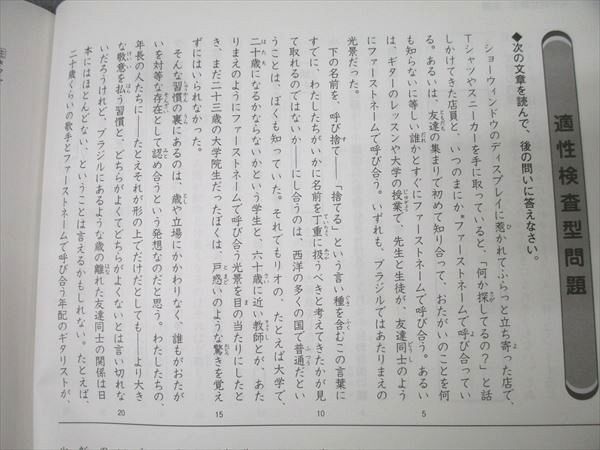 適性検査型問題
◆次の文章を読んで、後の問いに答えなさい。
ショーウィンドウのディスプレイに惹かれてふらっと立ち寄った店で、
Tシャツやスニーカーを手に取っていると、「何か探してるの？」と話
しかけてきた店員と、いつのまにか*ファーストネームで呼び合ってい
る。あるいは、友達の集まりで初めて知り合って、おたがいのことを何
も知らないに等しい誰かとすぐにファーストネームで呼び合う。あるい
は、ギターのレッスンや大学の授業で、先生と生徒が、友達同士のよう
にファーストネームで呼び合う。いずれも、ブラジルではあたりまえの
光景だった。
下の名前を、呼び捨て——「捨てる」という言い種を含むこの言葉に
すでに、わたしたちがいかに名前を丁重に扱うべきと考えてきたかが見
て取れるのではないか——にし合うのは、西洋の多くの国で普通だとい
うことは、ぼくも知っていた。それでもリオの、たとえば大学で、
二十歳になるかならないかという学生と、六十歳に近い教師とが、あた
りまえのようにファーストネームで呼び合う光景を目の当たりにしたと
き、まだ二十三歳の大学院生だったぼくは、戸惑いのような驚きを覚え
ずにはいられなかった。
そんな習慣の裏にあるのは、歳や立場にかかわりなく、誰もがおたが
いを対等な存在として認め合うという発想なのだと思う。わたしたちの、
年長の人たちに——たとえそれが形の上でだけだとしても——より大き
な敬意を払う習慣と、どちらがよくてどちらがよくないとは言い切れな
いだろうけれど、ブラジルにあるような歳の離れた友達同士の関係は日
本にはほとんどない、ということは言えるかもしれない。たとえば、
二十歳くらいの歌手とファーストネームで呼び合う年配のギタリストが、
5
10
15
20